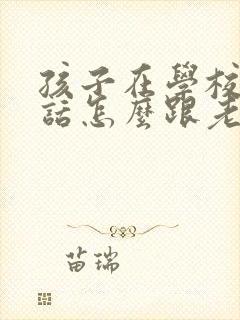 孩子在學校
話怎麼跟老
苗瑞